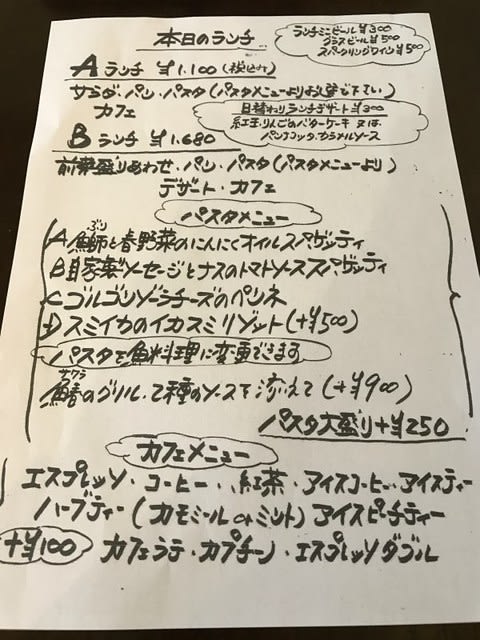 本日のランチ
ランチミニビール ¥300
グラスビール ¥500
スパークリングワイン ¥500
Aランチ ¥1.100(税込み)
サラダ・パン・パスタ(パスタメニューよりお選び下さい)
カフェ
日替わりランチデザート ¥300
紅玉りんごのバターケーキ 又は
パンナコッタ・カラメルソース
Bランチ ¥1.680
前菜盛りあわせ・パン・パスタ(パスタメニューより)
デザート・カフェ
パスタメニュー
ぶり
A 鰤と春野菜のにんにくオイルスパゲッティ
B 自家製ソーセージとナスのトマトソーススパゲッティ
C ゴルゴンゾーラチーズのペンネ
D スミイカのイカスミリゾット(+¥500)
パスタを魚料理に変更できます
サワラ
鰆のグリル 2種のソースを添えて(+¥900)
パスタ大盛り+¥250
カフェメニュー
エスプレッソ・コーヒー・紅茶・アイスコーヒー・アイスティー
ハーブティー(カモミール or ミント)アイスピーチティー
+¥100 カフェラテ・カプチーノ・エスプレッソダブル